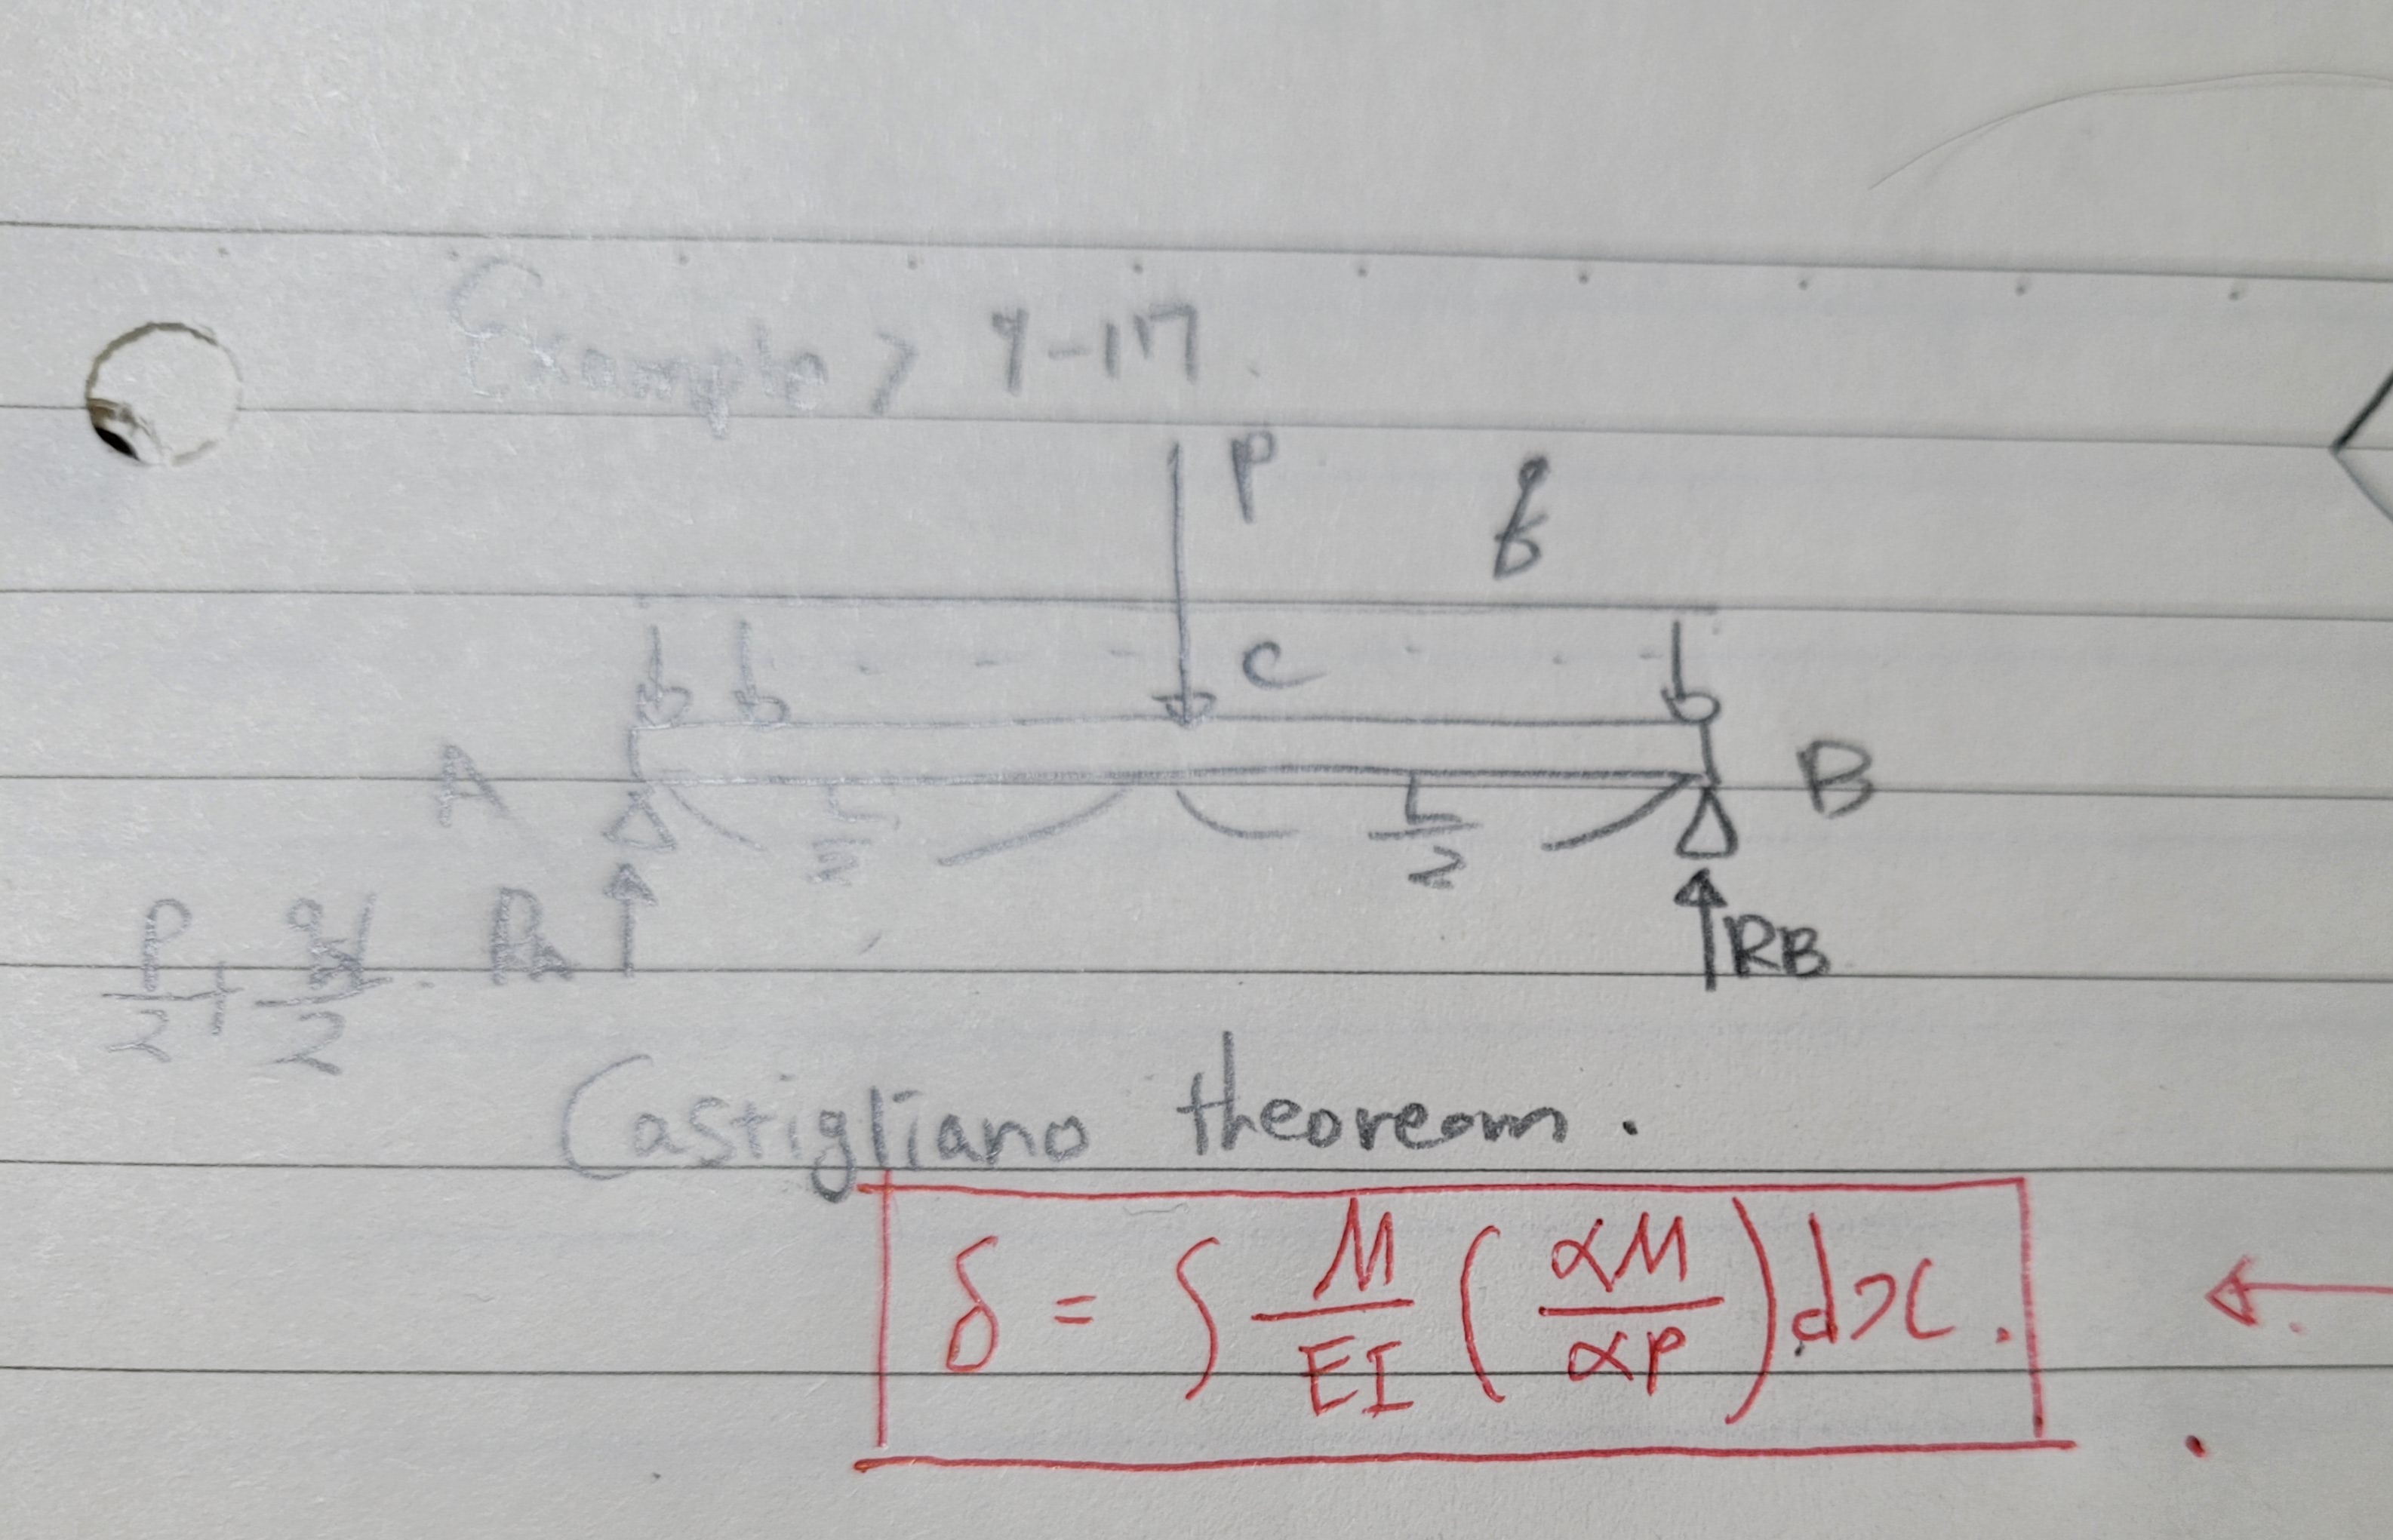 Example> 9-17.
P
q
C
A
L/2
L/2
B
P/2 + qL/2 . RA
RB
Castigliano theoreom.
δ = ∫ M/EI (αM/αP) dx.